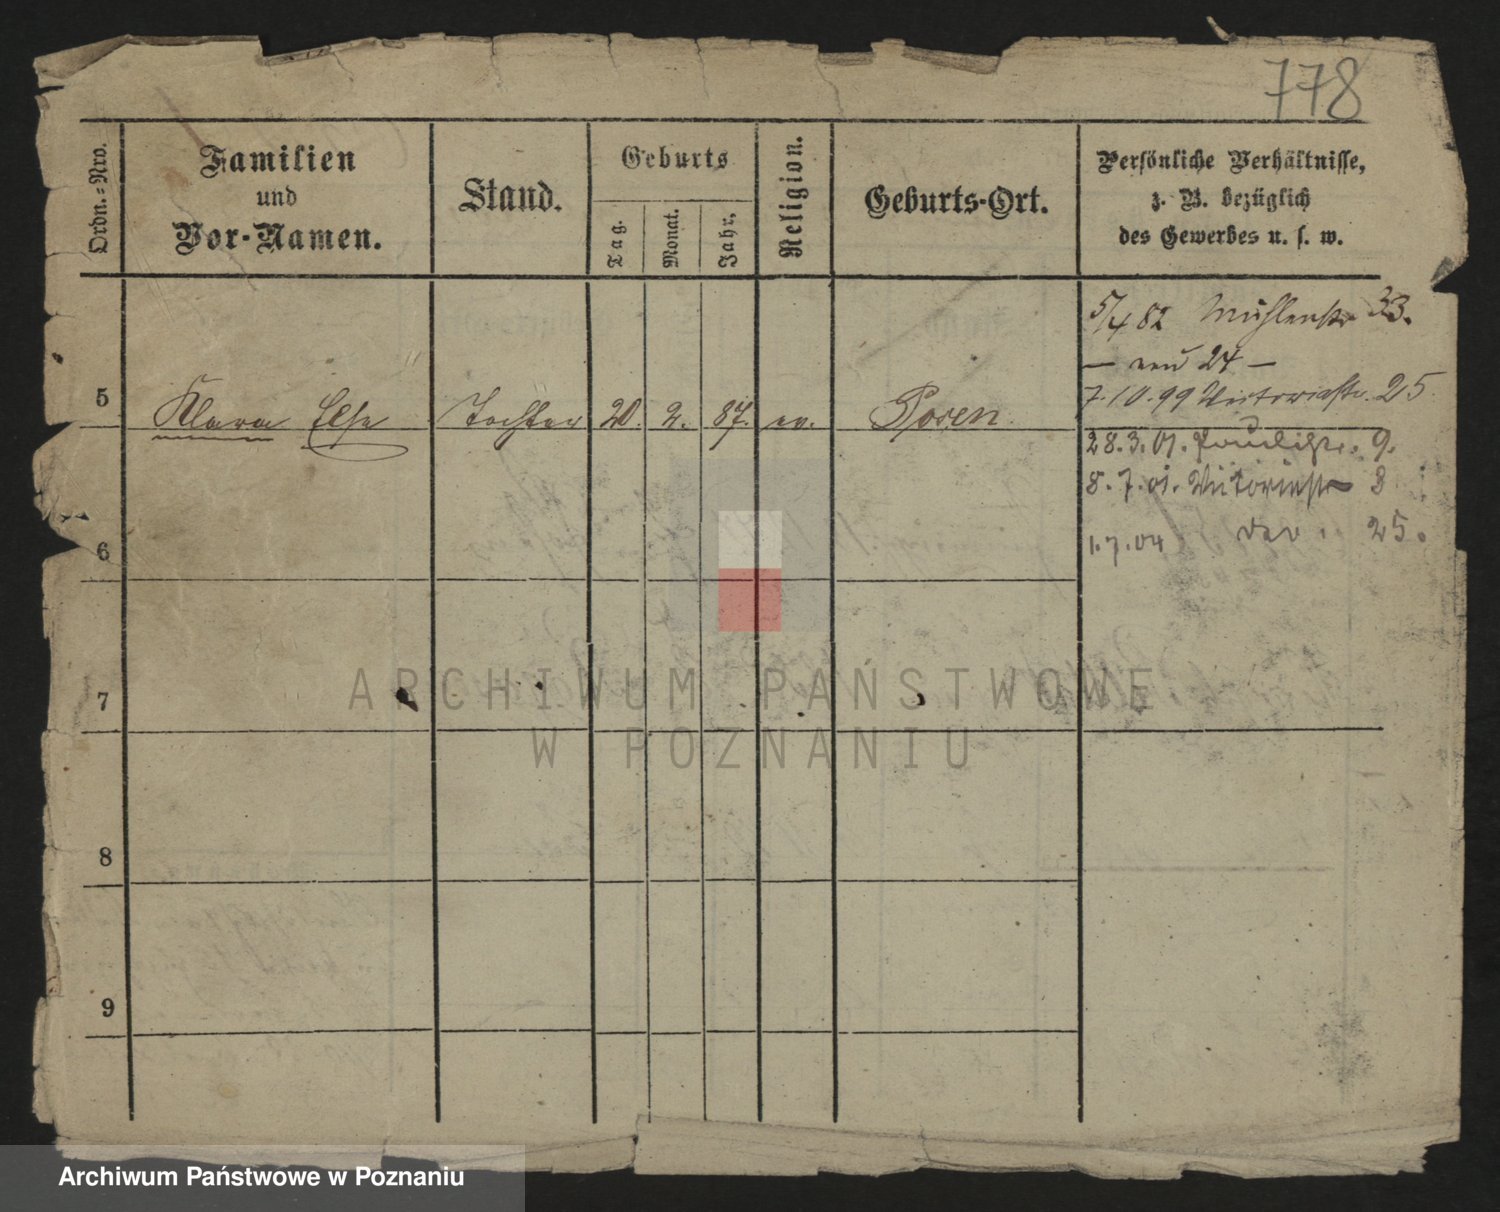 778
Ordn.-Nro.
Familien
und
Vor-Namen.
Stand.
Geburts
Tag.
Monat.
Jahr.
Religion.
Geburts-Ort.
Persönliche Verhältnisse,
z. B. bezüglich
des Gewerbes u. s. w.
5/4 82 Mühlenstr 33.
— neu 24 —
7.10.99 Victoriastr. 25
5 Klara Else Tochter 20. 2. 87. ev. Posen
28.3.01. 9.
8.7.01. Victoriastr 8
6
1.7.04 25.
7
8
9
ARCHIWUM PAŃSTWOWE
W POZNANIU
Archiwum Państwowe w Poznaniu